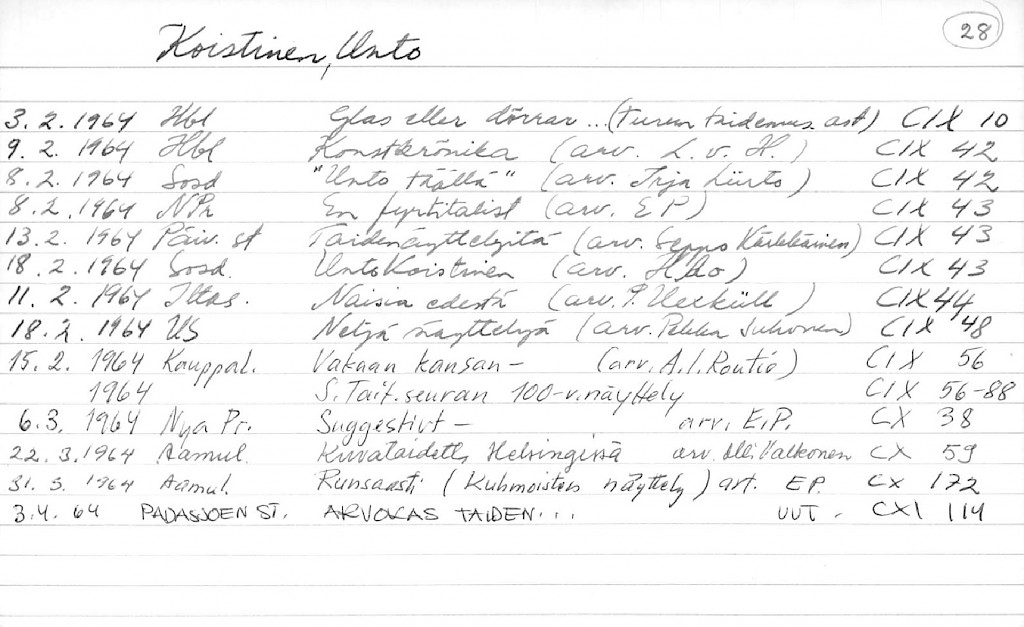 28
Koistinen, Unto
3.2.1964 Hbl Glas eller dörrar...(Turun taidemus. ast) CIX 10
9.2.1964 Hbl Konstkrönika (arv. L.v.H.) CIX 42
8.2.1964 Sosd "Unto täällä" (arv. Irja) CIX 42
8.2.1964 NPr En (arv. EP) CIX 43
13.2.1964 Päiv. st Taidenäyttelyitä (arv. Seppo) CIX 43
18.2.1964 Sosd. Unto Koistinen (arv.) CIX 43
11.2.1964 Iltas. Naisia edestä (arv. P.) CIX 44
18.2.1964 US Neljä näyttelyä (arv. Pekka Suhonen) CIX 48
15.2.1964 Kauppal. Vakaan kansan - (arv. A.I. Routio) CIX 56
1964 S. Tait. seuran 100-v. näyttely CIX 56-88
6.3.1964 Nya Pr. Suggestivt - arv. E.P. CX 38
22.3.1964 Aamul. Kuvataidetta Helsingissä arv. Olli Valkonen CX 59
31.3.1964 Aamul. Runsaasti (Kuhmoisten näyttely) art. EP. CX 172
3.4.64 PADASJOEN ST. ARVOKAS TAIDEN... UUT. CXI 114